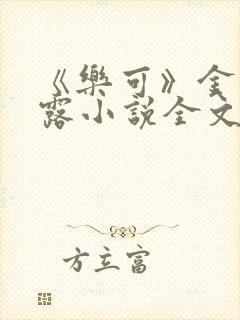 《樂可》金
露小說全文
方立富